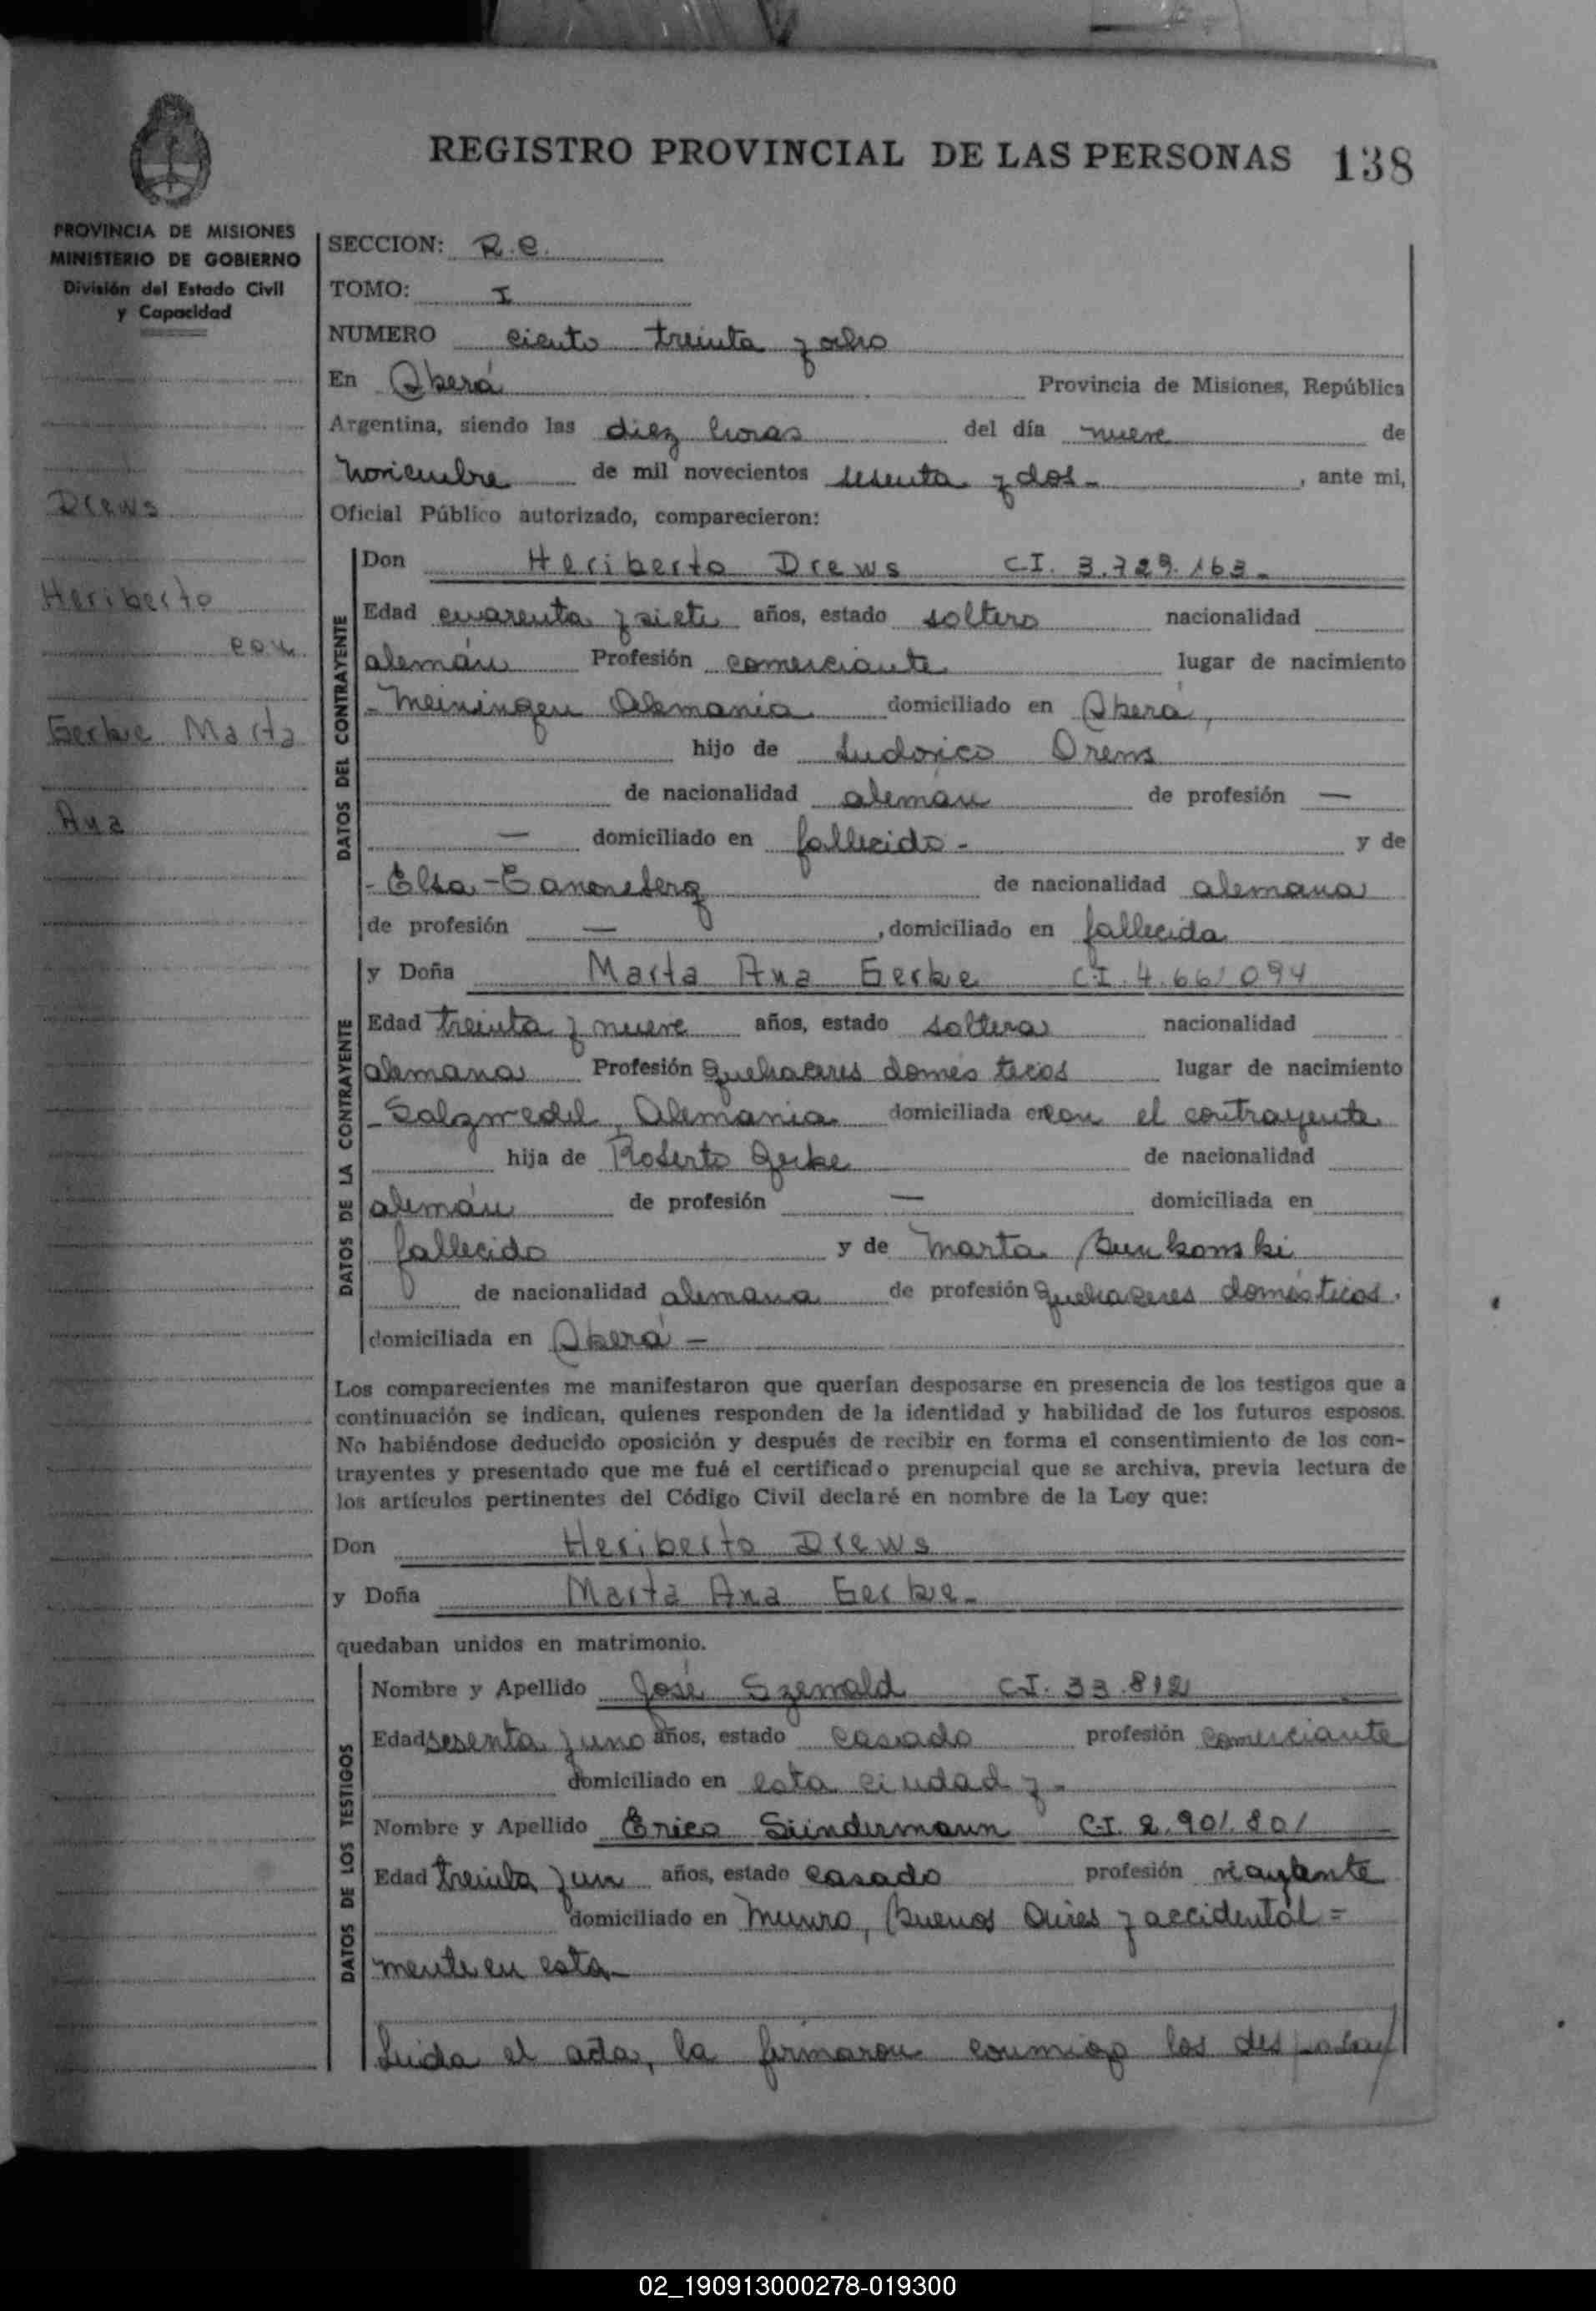 REGISTRO PROVINCIAL DE LAS PERSONAS 138
PROVINCIA DE MISIONES
MINISTERIO DE GOBIERNO
División del Estado Civil
y Capacidad
Drews
Heriberto
con
Gerke Marta
Ana
SECCION: R.C.
TOMO: I
NUMERO ciento treinta y ocho
En Oberá Provincia de Misiones, República
Argentina, siendo las diez horas del día nueve de
noviembre de mil novecientos sesenta y dos - , ante mi,
Oficial Público autorizado, comparecieron:
DATOS DEL CONTRAYENTE
Don Heriberto Drews CI. 3.729.163 -
Edad cuarenta y siete años, estado soltero nacionalidad
alemán Profesión comerciante lugar de nacimiento
- Meiningen Alemania domiciliado en Oberá,
hijo de Ludovico Drews
de nacionalidad alemán de profesión —
— domiciliado en fallecido - y de
- Elsa - de nacionalidad alemana
de profesión — , domiciliado en fallecida
DATOS DE LA CONTRAYENTE
y Doña Marta Ana Gerke C.I. 4.661.094
Edad treinta y nueve años, estado soltera nacionalidad
alemana Profesión quehaceres domésticos lugar de nacimiento
- Salzwedel, Alemania domiciliada en con el contrayente
hija de Roberto Gerke de nacionalidad
alemán de profesión — domiciliada en
fallecido y de Marta
de nacionalidad alemana de profesión quehaceres domésticos.
domiciliada en Oberá -
Los comparecientes me manifestaron que querían desposarse en presencia de los testigos que a
continuación se indican, quienes responden de la identidad y habilidad de los futuros esposos.
No habiéndose deducido oposición y después de recibir en forma el consentimiento de los con-
trayentes y presentado que me fué el certificado prenupcial que se archiva, previa lectura de
los artículos pertinentes del Código Civil declaré en nombre de la Ley que:
Don Heriberto Drews
y Doña Marta Ana Gerke -
quedaban unidos en matrimonio.
DATOS DE LOS TESTIGOS
Nombre y Apellido José Szewald C.I. 33.812
Edad sesenta y uno años, estado casado profesión comerciante
domiciliado en esta ciudad y -
Nombre y Apellido Erico Sündermann C.I. 2.901.801
Edad treinta y un años, estado casado profesión viajante
domiciliado en Munro, Buenos Aires y accidental =
mente en esta -
Leida el acta, la firmaron conmigo los desposan/
02_190913000278-019300